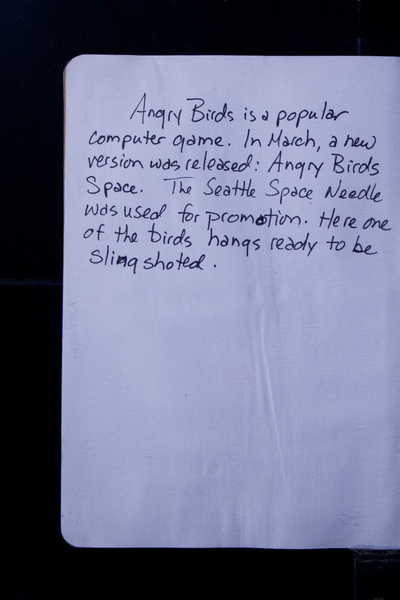 Angry Birds is a popular
computer game. In March, a new
version was released: Angry Birds
Space. The Seattle Space Needle
was used for promotion. Here one
of the birds hangs ready to be
slingshoted.